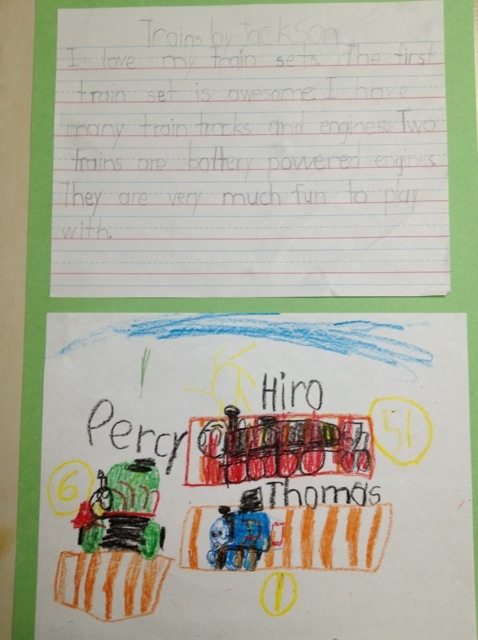 Trains by Jackson
I love my train sets. The first
train set is awesome. I have
many train tracks and engines. Two
trains are battery powered engines
They are very much fun to play
with.
Hiro
51
Percy
6
Thomas
1